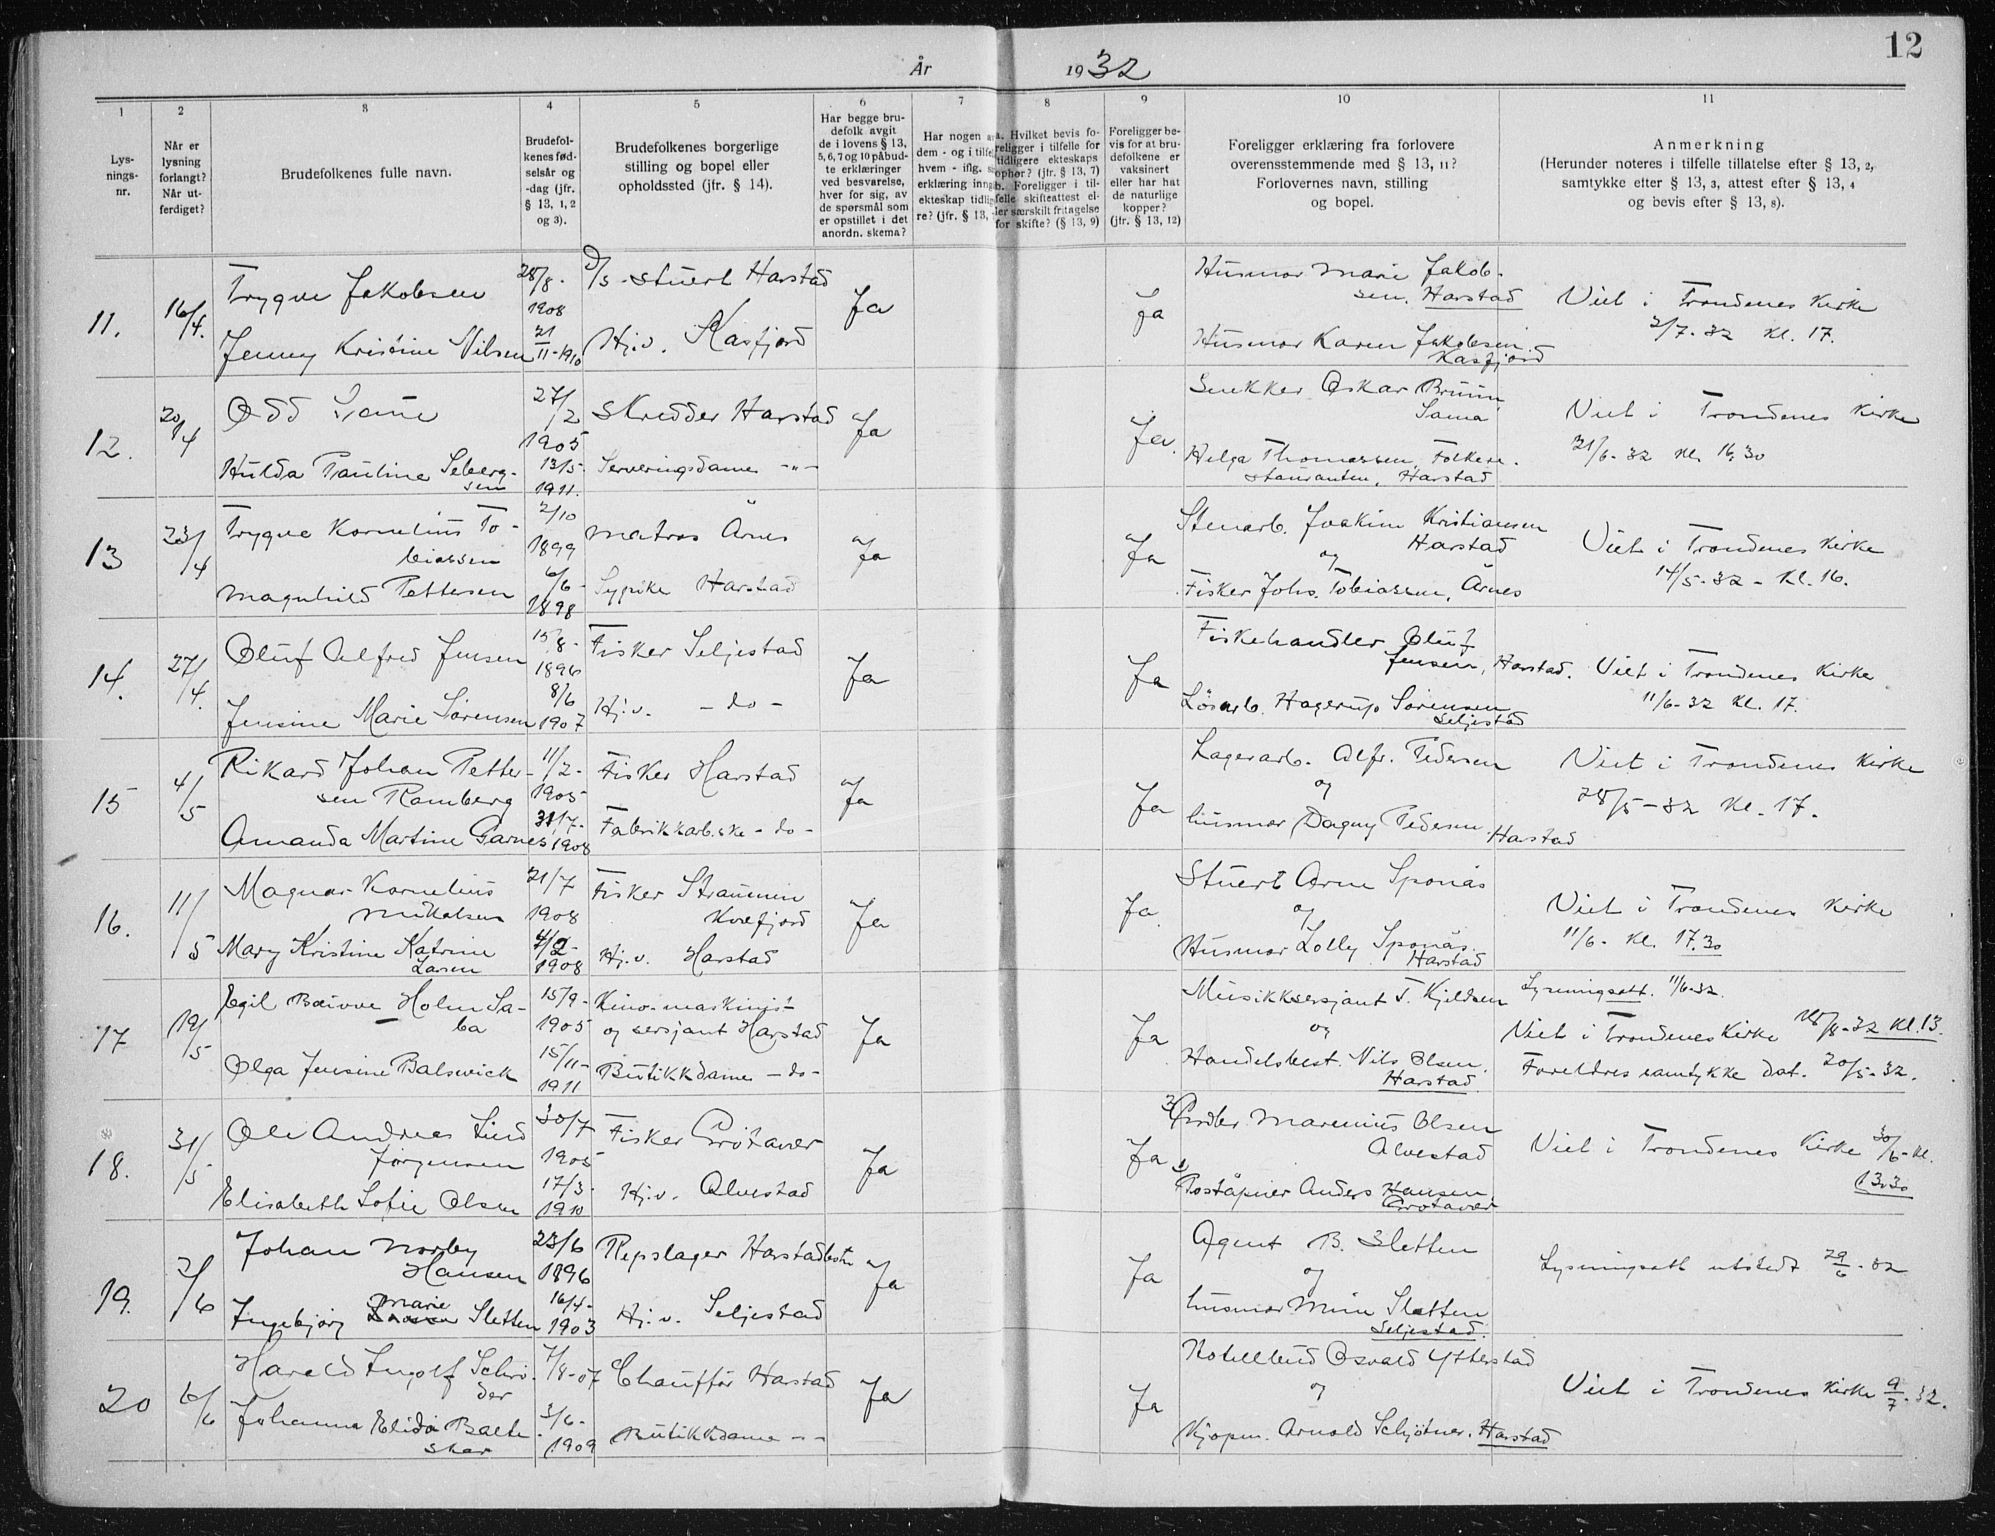 12
År 1932
1 2 3 4 5 6 7 8 9 10 11
Lys-
nings-
nr.
Når er
lysning
forlangt?
Når ut-
ferdiget?
Brudefolkenes fulle navn.
Brudefol-
kenes fød-
selsår og
-dag (jfr.
§ 13, 1, 2
og 3).
Brudefolkenes borgerlige
stilling og bopel eller
opholdssted (jfr. § 14).
Har begge bru-
defolk avgit
de i lovens § 13,
5, 6, 7 og 10 påbud-
te erklæringer
ved besvarelse,
hver for sig, av
de spørsmål som
er opstillet i det
anordn. skema?
Har nogen a
dem - og i tilfe
hvem - iflg. s
erklæring inng
ekteskap tidlig
re? (jfr. § 13,
a. Hvilket bevis fo-
religger i tilfelle for
tidligere ekteskaps
ophør? (jfr. § 13, 7)
b. Foreligger i til-
felle skifteattest el-
ler særskilt fritagelse
for skifte? (§ 13, 9)
Foreligger be-
vis for at bru-
defolkene er
vaksinert
eller har hat
de naturlige
kopper?
(jfr. § 13, 12)
Foreligger erklæring fra forlovere
overensstemmende med § 13, 11?
Forlovernes navn, stilling
og bopel.
Anmerkning
(Herunder noteres i tilfelle tillatelse efter § 13, 2,
samtykke efter § 13, 3, attest efter § 13, 4
og bevis efter § 13, 8).
11. 16/4. Trygve Jakobsen 28/8 - 1908 D/S - stuert Harstad Ja Ja
Jenny Kristine Nilsen 21/11 - 1910 Hj.v. Kasfjord
Husmor Marie Jakob-
sen. Harstad
Husmor Karen Jakobsen.
Kasfjord
Viet i Trondenes Kirke
2/7 - 32 Kl. 17.
12. 20/4 Odd 27/2 1905 Skredder Harstad Ja Ja.
Hulda Pauline Seberg-
sen 13/5 - 1911. Serveringsdame - " -
Snekker Oskar Bruun
Sama
Helga Thomassen, Folkere-
stauranten, Harstad
Viet i Trondenes Kirke
21/6 - 32 Kl. 16.30
13 23/4 Trygve Kornelius To-
biassen 2/10 1899 Matros Årnes Ja Ja
Magnhild Pettersen 6/6 - 1898 Sypike Harstad
Stenarb. Joakim Kristiansen
Harstad
og
Fisker Johs. Tobiassen, Årnes
Viet i Trondenes Kirke
14/5 - 32 - Kl. 16.
14. 27/4. Oluf Alfred Jensen 15/8 - 1896 Fisker Seljestad Ja Ja
Jensine Marie Sørensen 8/6 1907 Hj.v. - do -
Fiskehandler Oluf
Jensen, Harstad.
Løsarb. Hagerup Sørensen
Seljestad
Viet i Trondenes Kirke
11/6 - 32 Kl. 17.
15 4/5 Rikard Johan Petter-
sen Ramberg 11/2 - 1905 Fisker Harstad Ja Ja
Amanda Martine Garnes 31/7 - 1908 Fabrikkarb.ske - do -
Lagerarb. Alfr. Pedersen
og
husmor Dagny Pedersen
Harstad
Viet i Trondenes Kirke
28/5 - 32 Kl. 17.
16. 11/5 Magnar Kornelius
Mikalsen 21/7 1908 Fisker Straumen
Kvæfjord Ja Ja
Mary Kristine Katrine
Larsen 4/2 - 1908 Hj.v. Harstad
Stuert Arne Sponås
og
Husmor Lolly Sponås.
Harstad
Viet i Trondenes Kirke
11/6 - Kl. 17.30
17 19/5 Egil Bøivve Holm Sa-
ba 15/9 - 1905 Kino-maskinist
og sersjant Harstad Ja Ja
Olga Jensine Balswick 15/11 - 1911 Butikkdame - do -
Musikksersjant T. Kjeldsen
og
Handelsbest. Nils Olsen.
Harstad
Lysningsatt. 11/6-32.
Viet i Trondenes Kirke 18/8 - 32 Kl. 13.
Foreldres samtykke dat. 20/5 - 32.
18. 31/5 Ole Andreas Lind
Jørgensen 30/7 1905 Fisker Grøtavær Ja Ja
Elisabeth Sofie Olsen 17/3 - 1910 Hj.v. Alvestad
Gårdbr. Marenius Olsen
Alvestad
Poståpner Anders Hansen
Grøtavær
Viet i Trondenes Kirke 30/6 - Kl.
13.30
19. 2/6 Johan Norby
Hansen 23/6 1896 Repslager Harstadbotn Ja Ja
Ingebjørg Marie Sletten 16/4 - 1903 Hj.v. Seljestad
Agent B. Sletten
og
husmor Mim Sletten
Seljestad.
Lysningsatt utstedt 29/6 - 32
20 6/6 Harald Ingolf Schrø-
der 7/8 - 07 Chauffør Harstad Ja Ja
Johanna Elida Balte
skar 3/6 - 1909 Butikkdame - -
Hotellbud Osvald Ytterstad
og
Kjøpm. Arnold Schjøtner. Harstad
Viet i Trondenes Kirke 9/7 - 32.